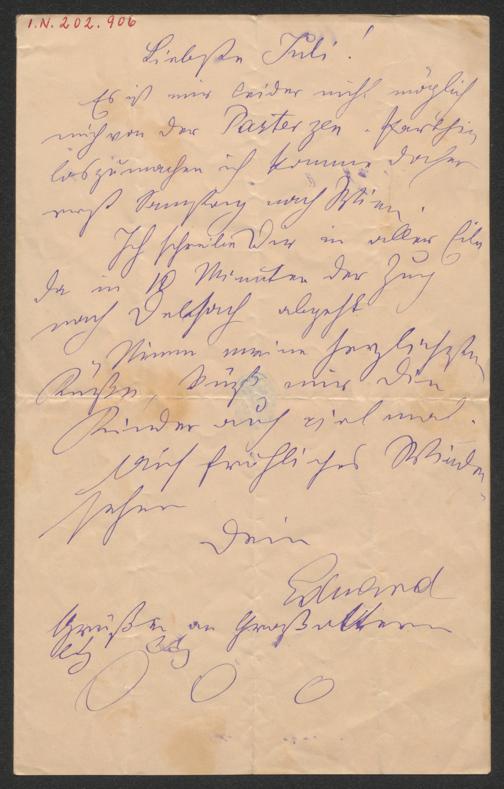 I.N. 202.906
Liebste Juli!
Es ist mir leider nicht möglich
mich von der Pasterzen-Parthie
loszumachen ich komme daher
erst Samstag nach Wien.
Ich schreibe Dir in aller Eile
da in 10 Minuten der Zug
nach Delsach abgeht
Nimm meine herzlichsten
Küsse, küß mir die
Kinder auch viel mal.
Auf fröhliches Wieder-
sehen
Dein
Eduard
Grüße an Großeltern